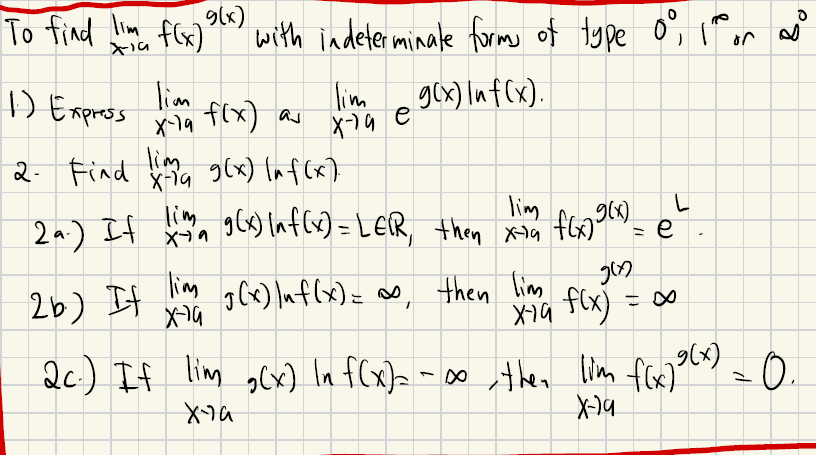 To find lim x→a f(x)^g(x) with indeterminate forms of type 0^0, 1^∞ or ∞^0
1.) Express lim x→a f(x) as lim x→a e^g(x) ln f(x).
2. Find lim x→a g(x) ln f(x).
2a.) If lim x→a g(x) ln f(x) = L∈ℝ, then lim x→a f(x)^g(x) = e^L.
2b.) If lim x→a g(x) ln f(x) = ∞, then lim x→a f(x)^g(x) = ∞
2c.) If lim x→a g(x) ln f(x) = -∞, then lim x→a f(x)^g(x) = 0.